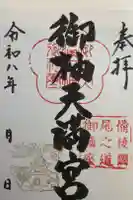 奉拝
御袖天満宮
備後國
尾之道
御鎮座
令和八年
月
日